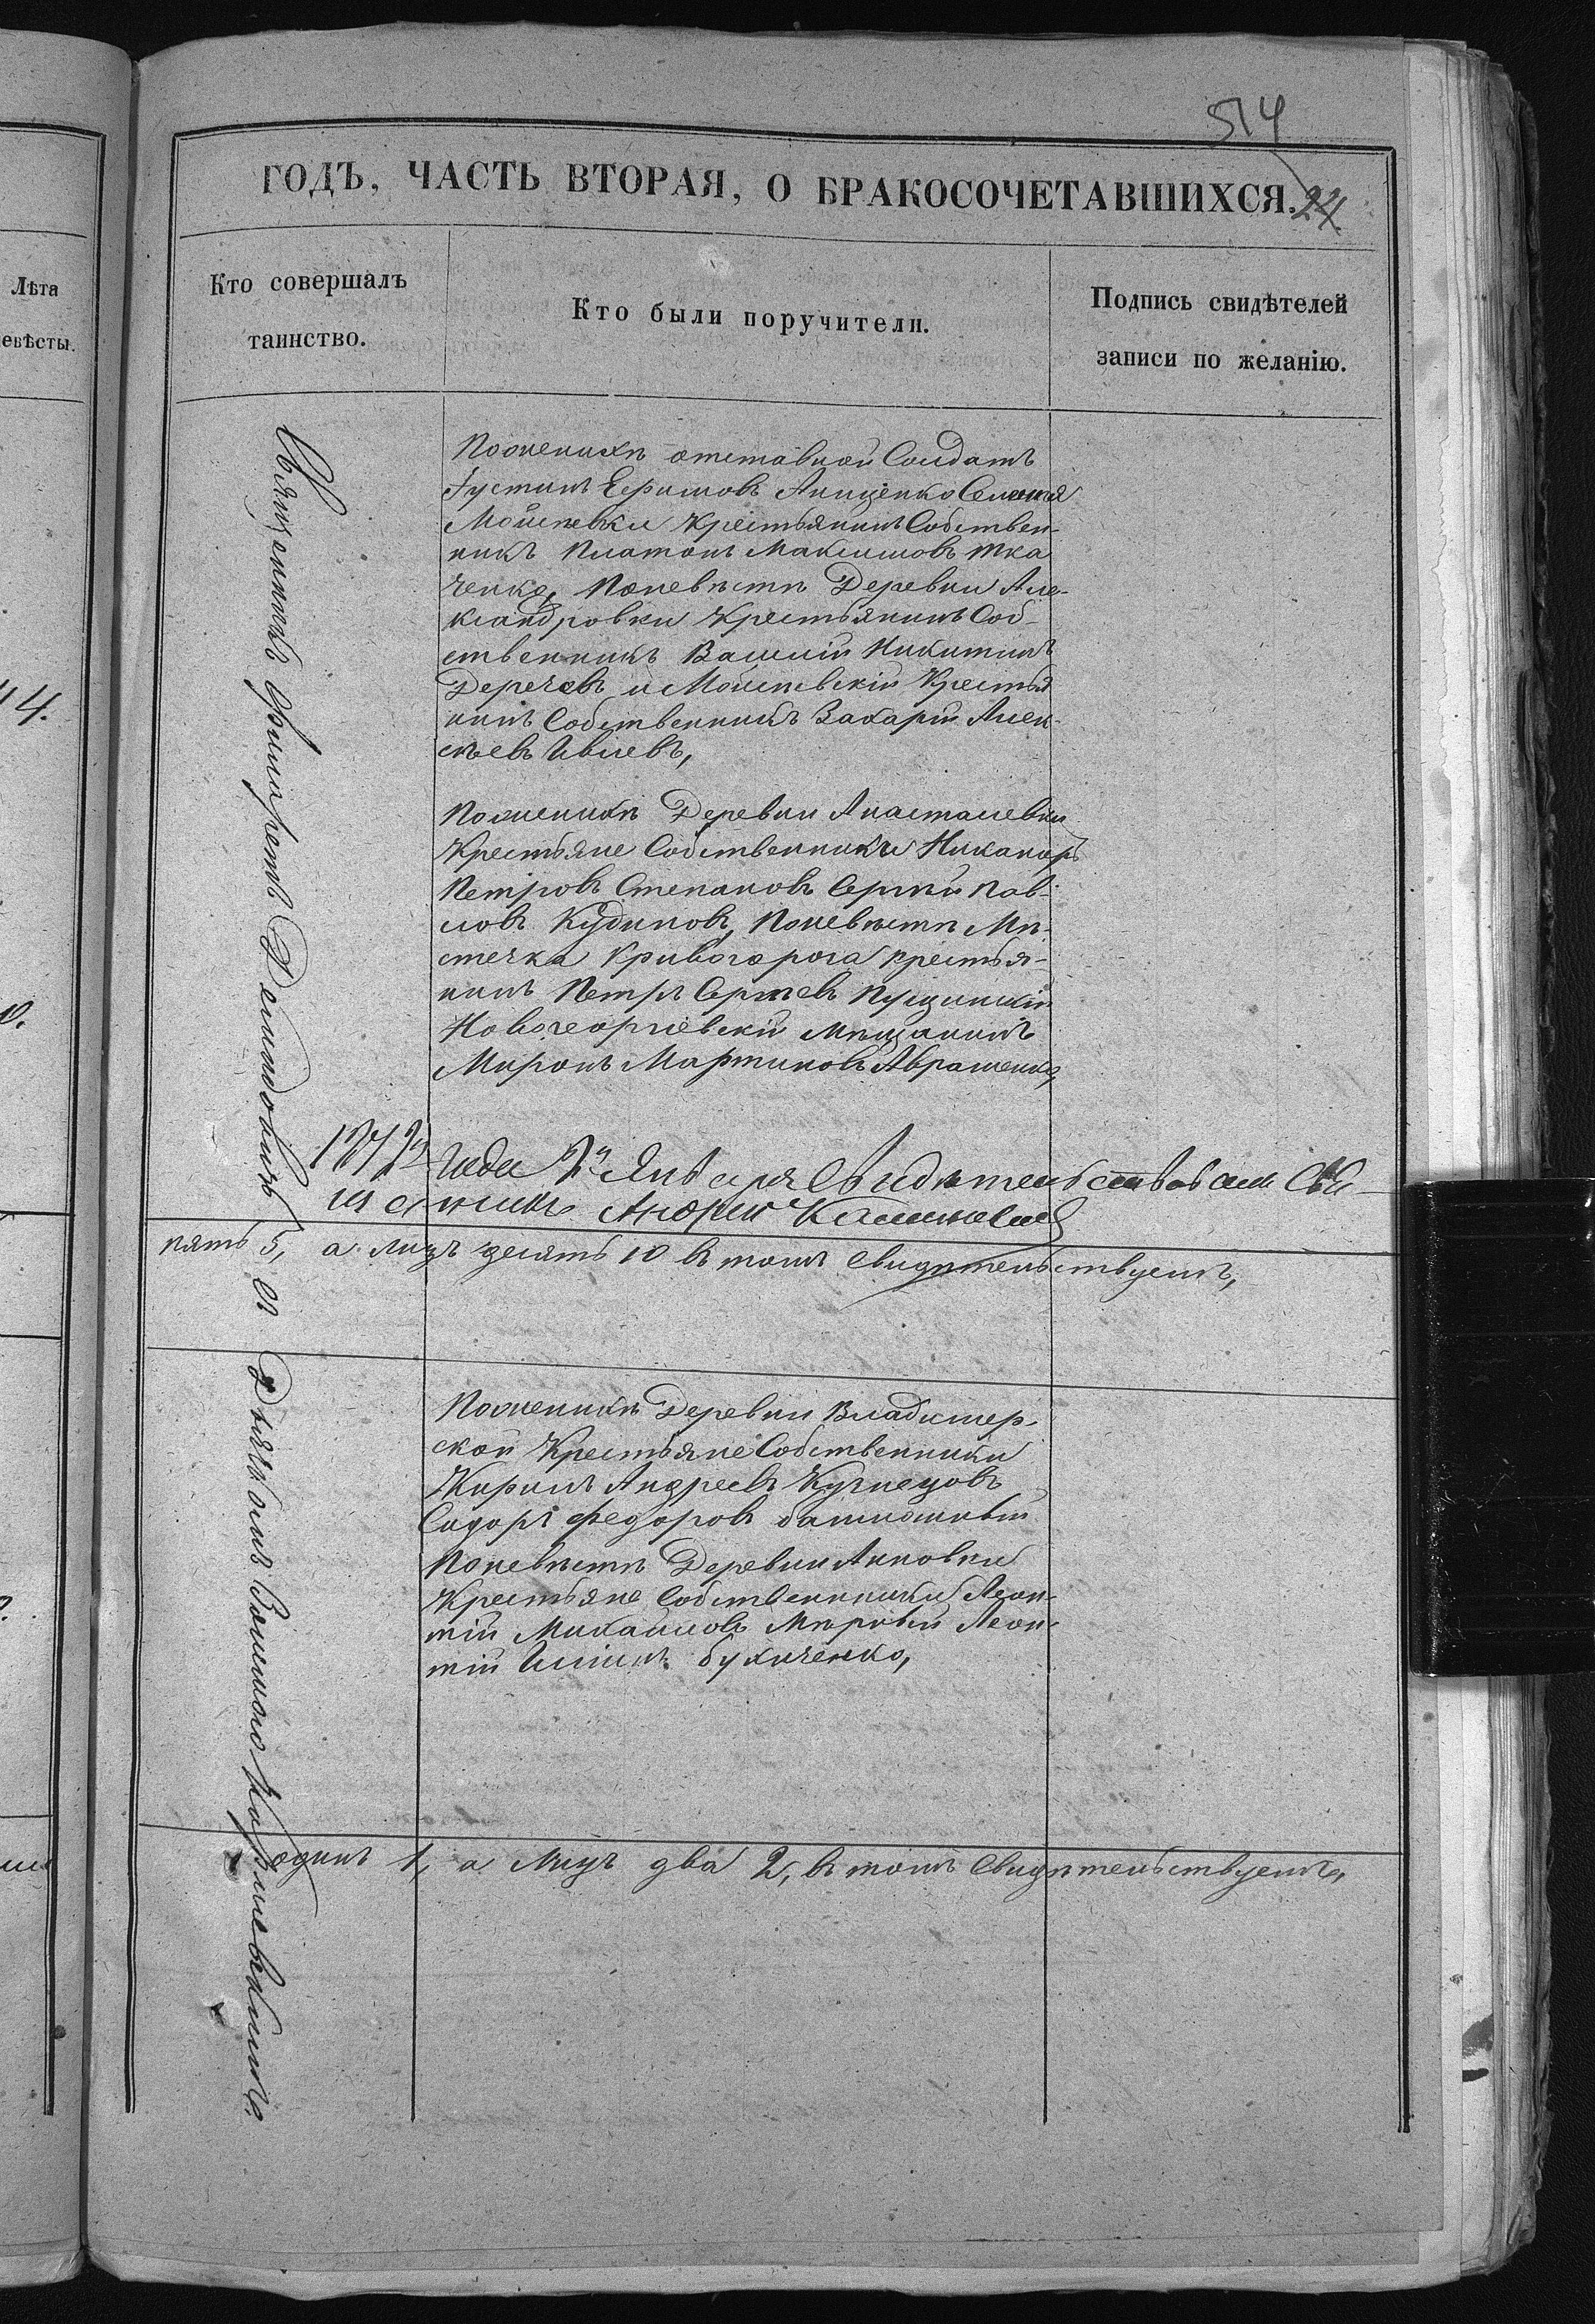 514
ГОДЪ, ЧАСТЬ ВТОРАЯ, О БРАКОСОЧЕТАВШИХСЯ.
24.
Лѣта
евѣсты.
Кто совершалъ
таинство.
Кто были поручители.
Подпись свидѣтелей
записи по желанію.
14.
Священникъ Филаретъ Демидовичъ
съ Дьячкомъ
Поженихѣ отставной Солдатъ
Іустинъ Ефимовъ Анищенко Селенія
Моисеевки Крестьянинъ Собствен-
никъ Платонъ Максимовъ Тка
ченко, Поневѣстѣ Деревни Але-
ксандровки Крестьянинъ Соб-
ственникъ Василій Никитинъ
Деречевъ и Моисеевскій Крестья
нинъ Собственникъ Захарій Алек-
сѣевъ Ивлевъ,
Поженихѣ Деревни Анастасіевки
Крестьяне Собственники Никаноръ
Петровъ Степановъ Сергѣй Пав-
ловъ Кудиновъ, Поневѣстѣ Мѣ-
стечка Кривогорога крестья-
нинъ Петръ Сергѣевъ Пущинскій
Новогеоргіевскій Мѣщанинъ
Миронъ Мартиновъ Авраменко,
года Января Свидѣтельствовалъ
Андрей
пять 5, а лицъ десять 10 въ томъ Свидѣтельствуемъ,
Поженихѣ Деревни Владимер-
ской Крестьяне Собственники
Кирилъ Андреевъ Кузнецовъ
Сидоръ Федоровъ
Поневѣстѣ Деревни Анновки
Крестьяне Собственники Леон-
тій Михайловъ Мировый Леон-
тій Ильинъ
одинъ 1, а Лицъ два 2, въ томъ Свидѣтельствуемъ,